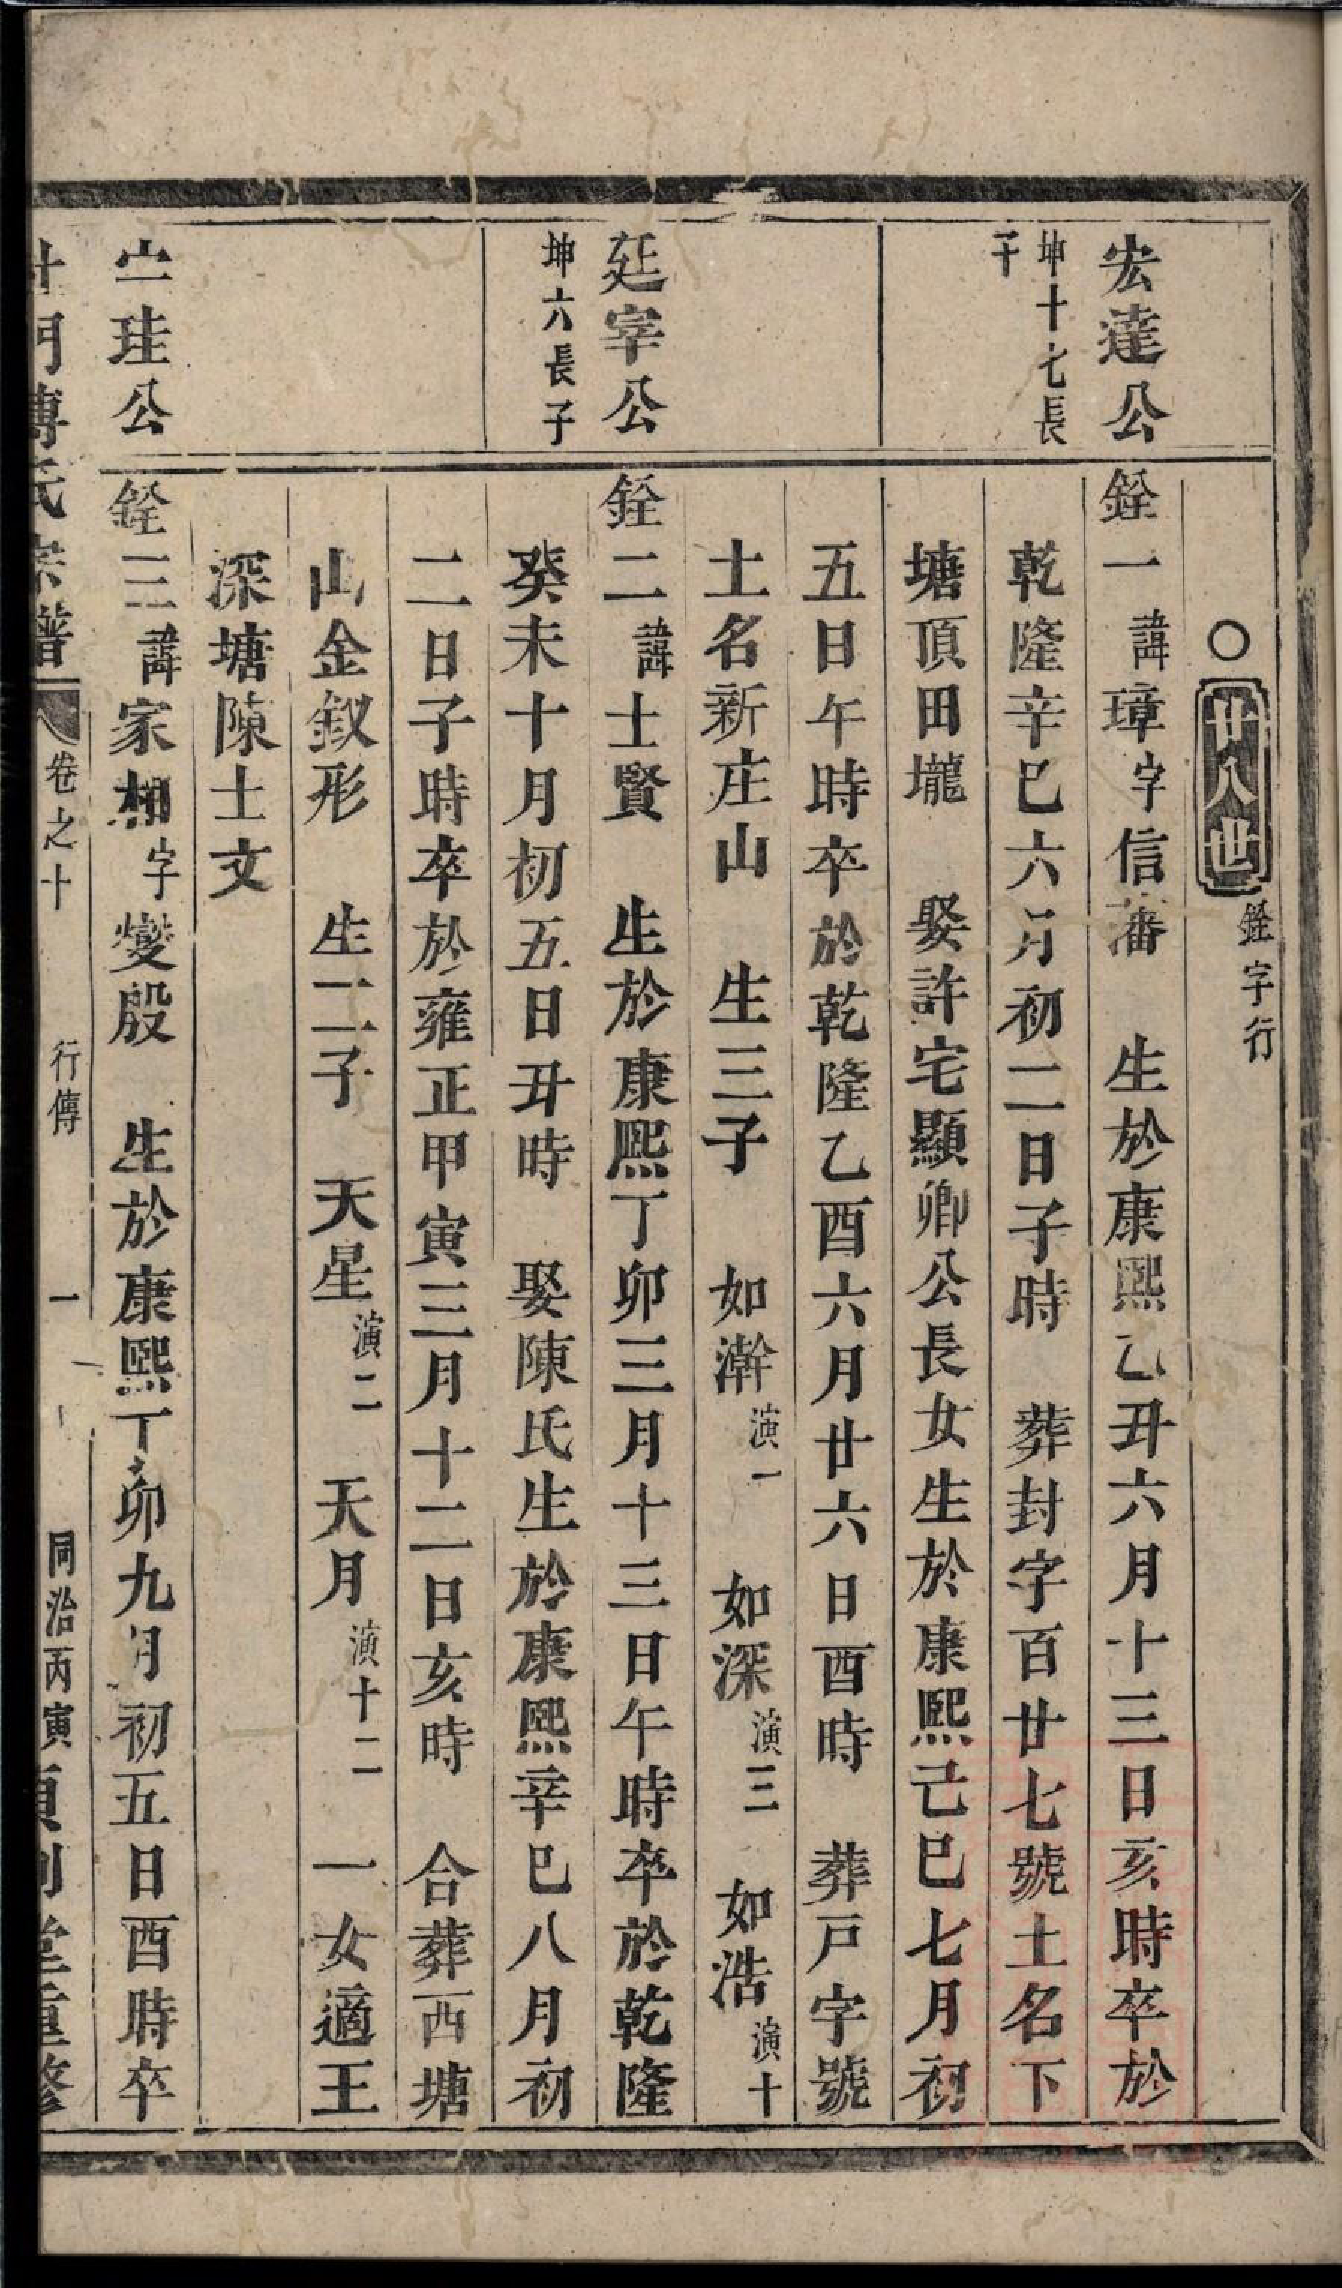 ○廿八世 銓字行
宏達公
坤十七長
子
銓一諱璋字信藩 生於康熙乙丑六月十三日亥時卒於
乾隆辛巳六月初二日子時 葬封字百廿七號土名下
塘頂田壠 娶許宅顯卿公長女生於康熙己巳七月初
五日午時卒於乾隆乙酉六月廿六日酉時 葬戸字號
土名新庄山 生三子 如澣演一 如深演三 如浩演十
廷宰公
坤六長子
銓二諱士賢 生於康熙丁卯三月十三日午時卒於乾隆
癸未十月初五日丑時 娶陳氏生於康熙辛巳八月初
二日子時卒於雍正甲寅三月十二日亥時 合葬西塘
山金釵形 生二子 天星演二 天月演十二 一女適王
深塘陳士文
珪公
銓三諱家相字燮殷 生於康熙丁卯九月初五日酉時卒
門傅氏宗譜 卷之十 行傳 一 同治丙寅 堂重修